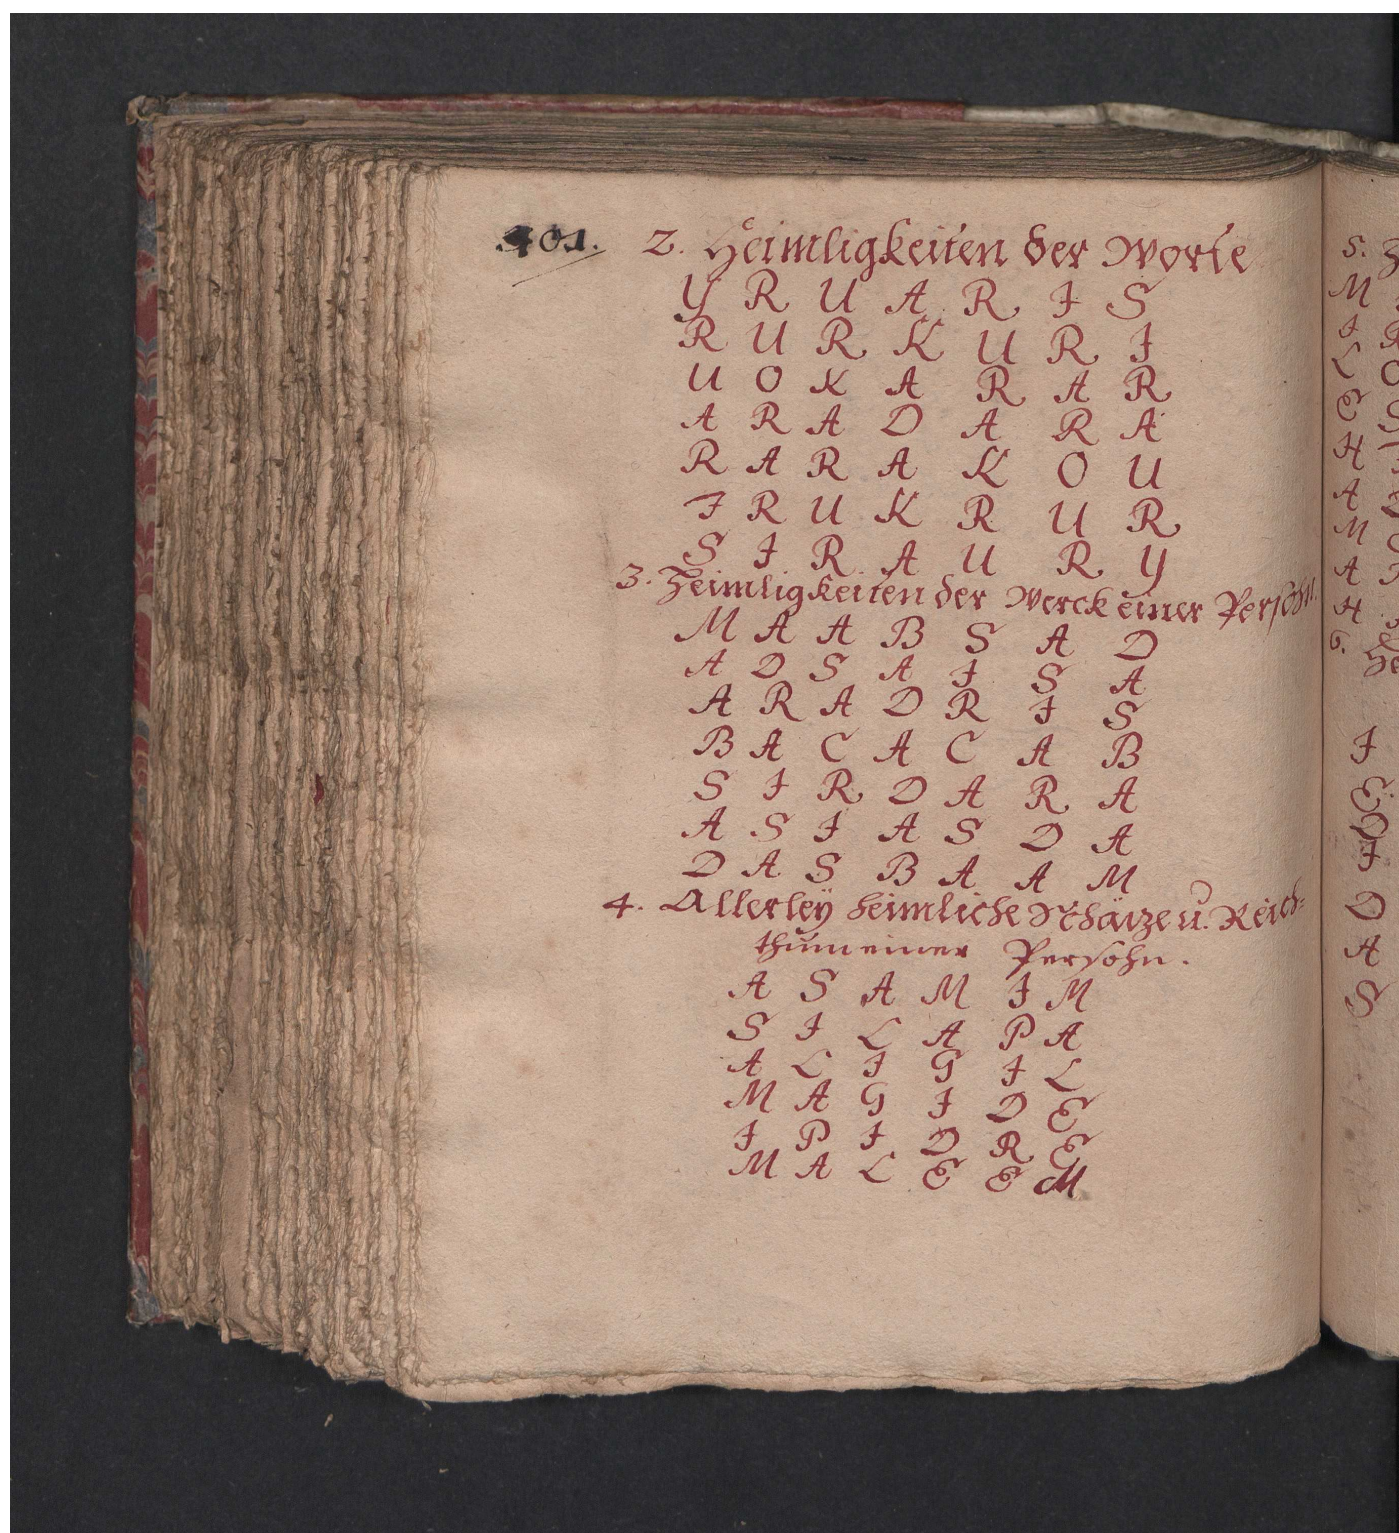 401. 2. Heimligkeiten der Worte
Y R U A R I S
R U R K U R I
U O K A R A R
A R A D A R A
R A R A K O U
I R U K R U R
S I R A U R Y
3. Heimligkeiten der Werck einer Persohn.
M A A B S A D
A D S A I S A
A R A D R I S
B A C A C A B
S I R D A R A
A S I A S D A
D A S B A A M
4. Allerleÿ heimliche Schätze u. Reich=
thum einer Persohn.
A S A M I M
S I L A P A
A L I G I L
M A G I D E
I P I D R E
M A L E E M
5.
M
I
L
E
H
A
M
A
H
6.
I
E
I
D
A
S